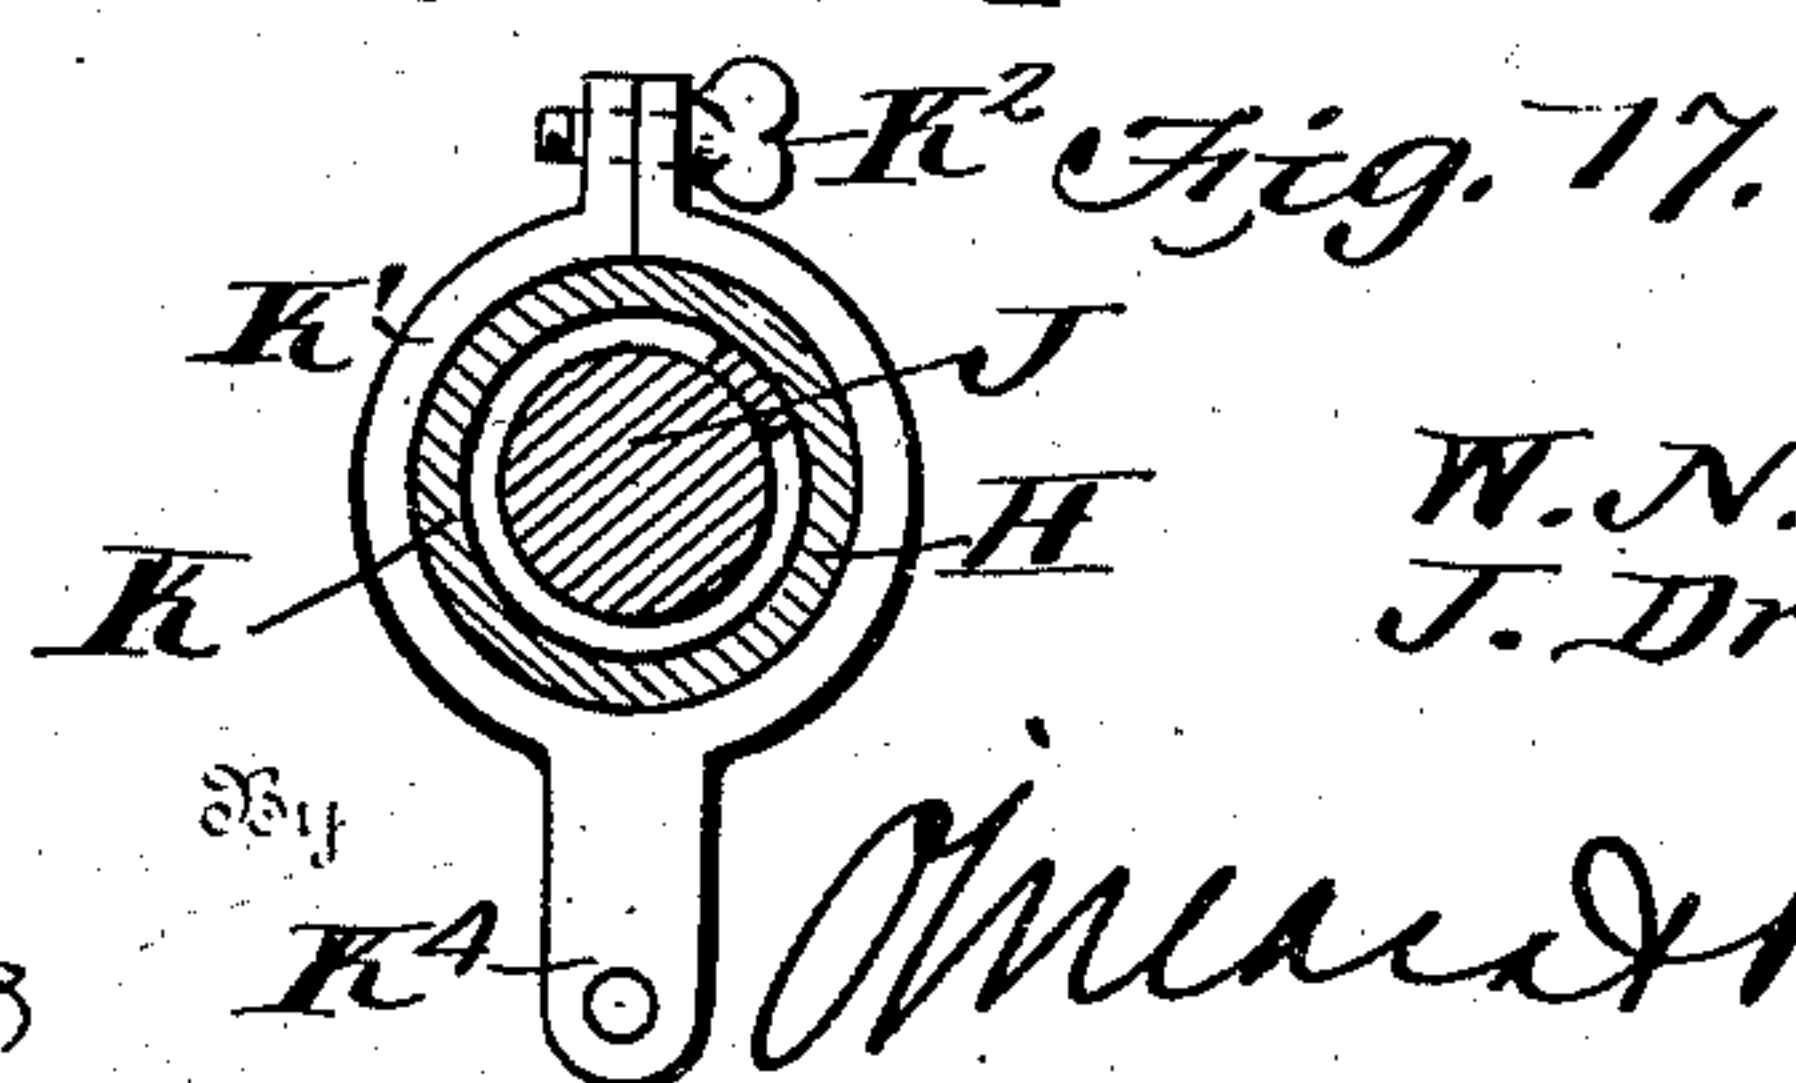 K² Fig. 17.
K'
J
W. N.
H
K
J. Dr
By
K⁴